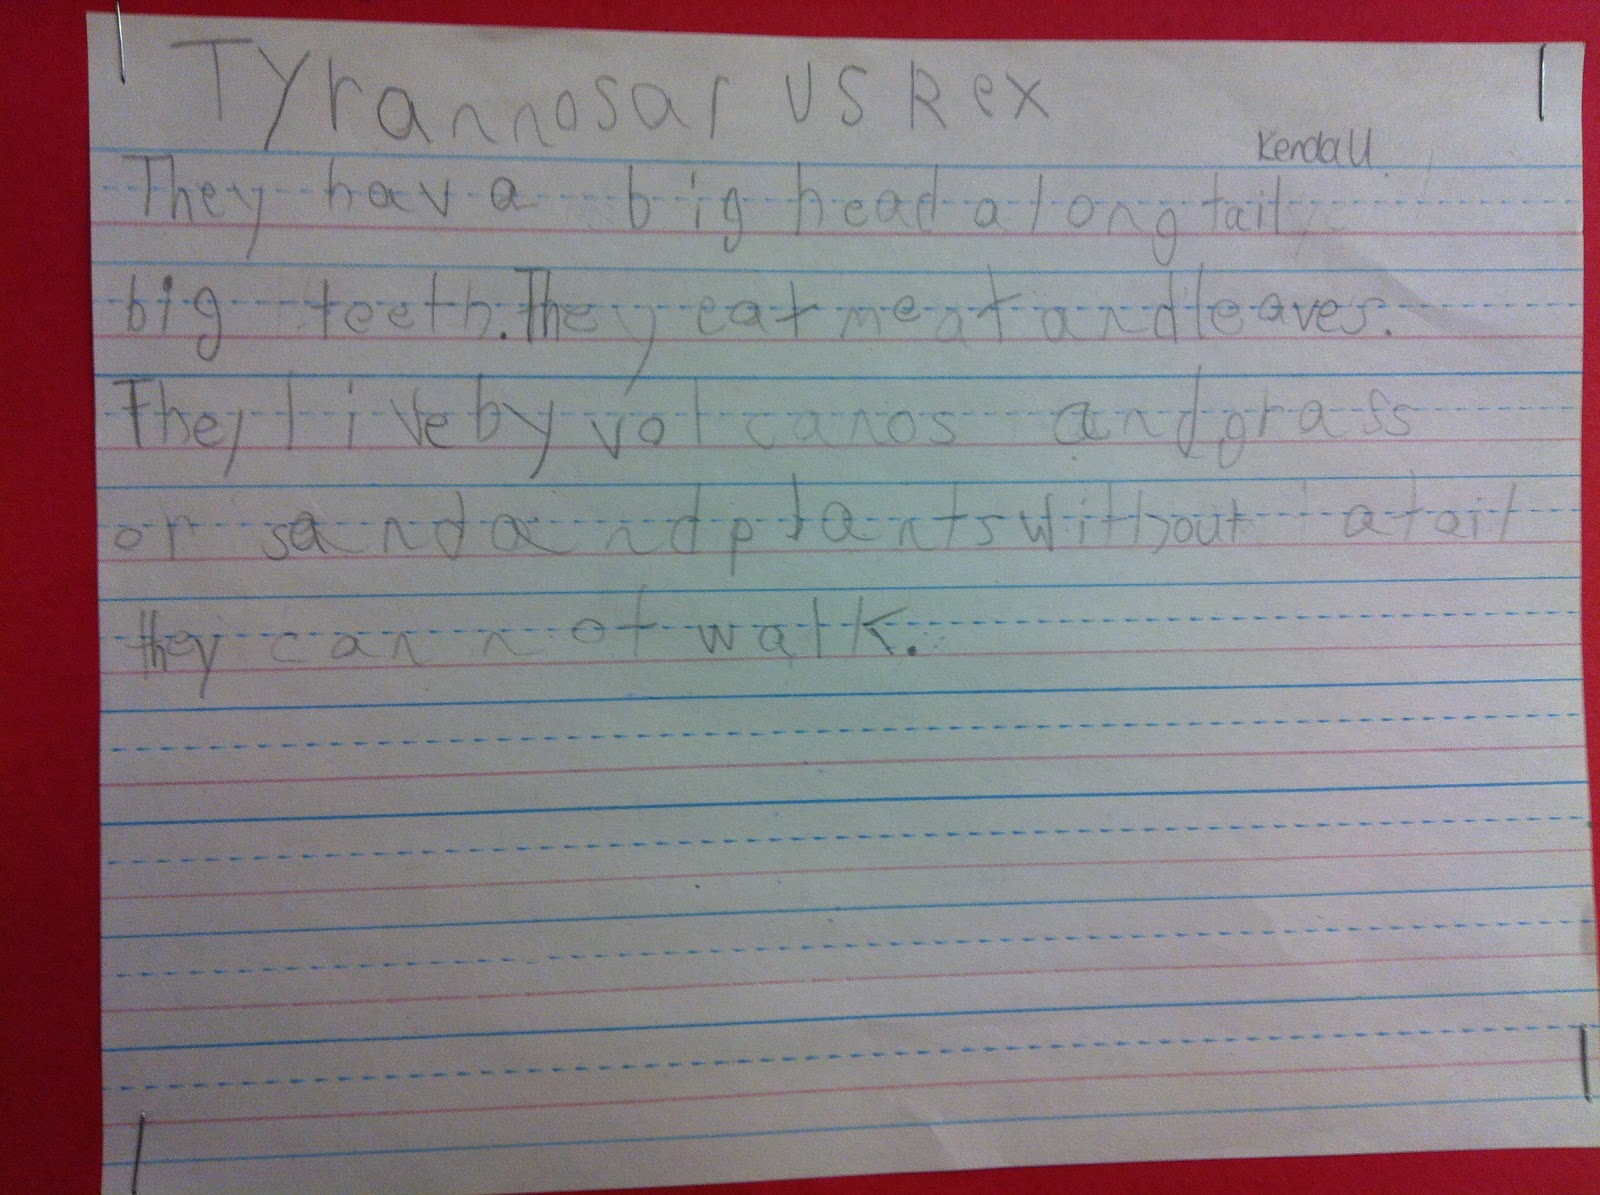 Tyrannosarus Rex
Kendall
They hav a big head a long tail,
big teeth. They eat meat and leaves.
They live by volcanos and grass
or sand and plants without a tail
they can not walk.